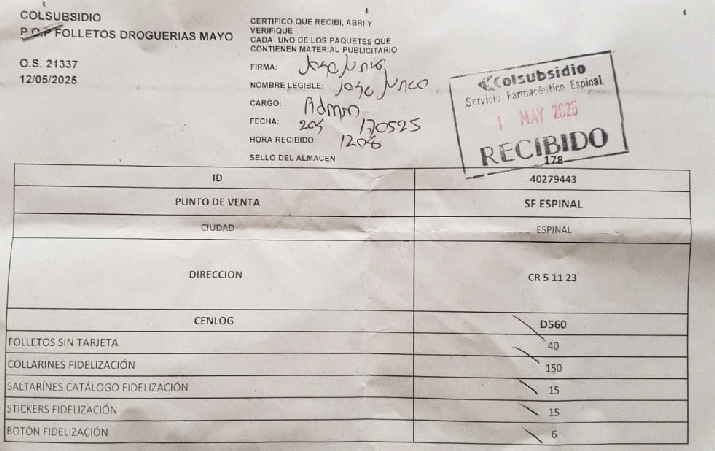 COLSUBSIDIO
P.O.P FOLLETOS DROGUERIAS MAYO
O.S. 21337
12/05/2025
CERTIFICO QUE RECIBI, ABRI Y
VERIFIQUE
CADA UNO DE LOS PAQUETES QUE
CONTIENEN MATERIAL PUBLICITARIO
FIRMA: Jose Junco
NOMBRE LEGIBLE: Jose Junco
CARGO: Admon
FECHA: 170525
HORA RECIBIDO: 1206
SELLO DEL ALMACEN
Colsubsidio
Servicio Farmacéutico Espinal
MAY 2025
RECIBIDO
178
ID 40279443
PUNTO DE VENTA SF ESPINAL
CIUDAD ESPINAL
DIRECCION CR 5 11 23
CENLOG D560
FOLLETOS SIN TARJETA 40
COLLARINES FIDELIZACIÓN 150
SALTARÍNES CATÁLOGO FIDELIZACIÓN 15
STICKERS FIDELIZACIÓN 15
BOTÓN FIDELIZACIÓN 6